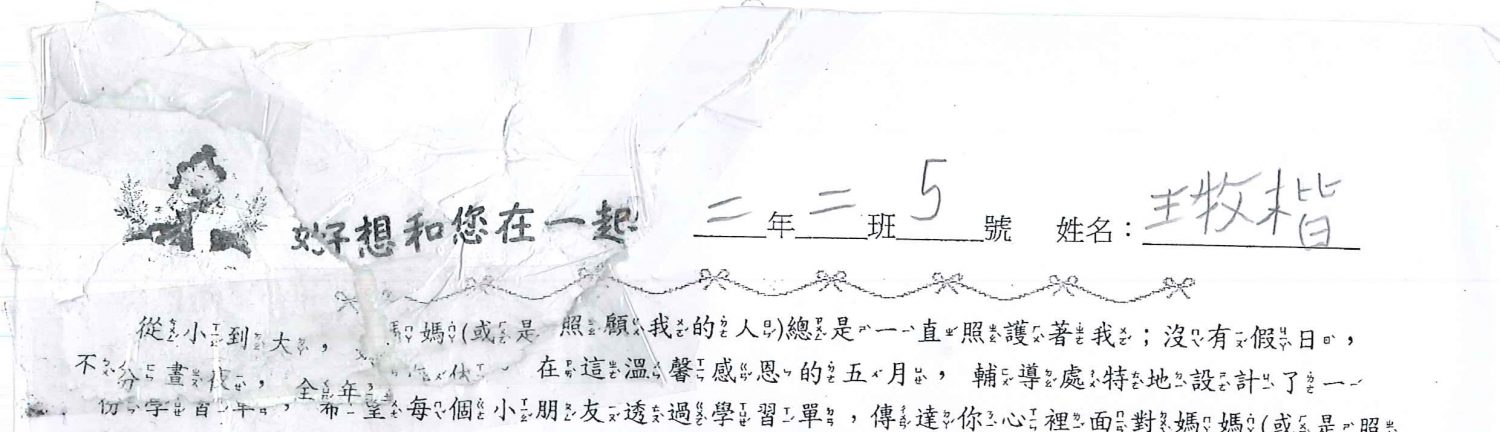 好想和您在一起 二年二班5號 姓名：王牧楷
從小到大，媽媽(或是 照顧我的人)總是一直照護著我；沒有假日，
不分晝夜，全年 休 在這溫馨感恩的五月， 輔導處特地設計了一
份學習單，希望每個小朋友透過學習單，傳達你心裡面對媽媽(或是照